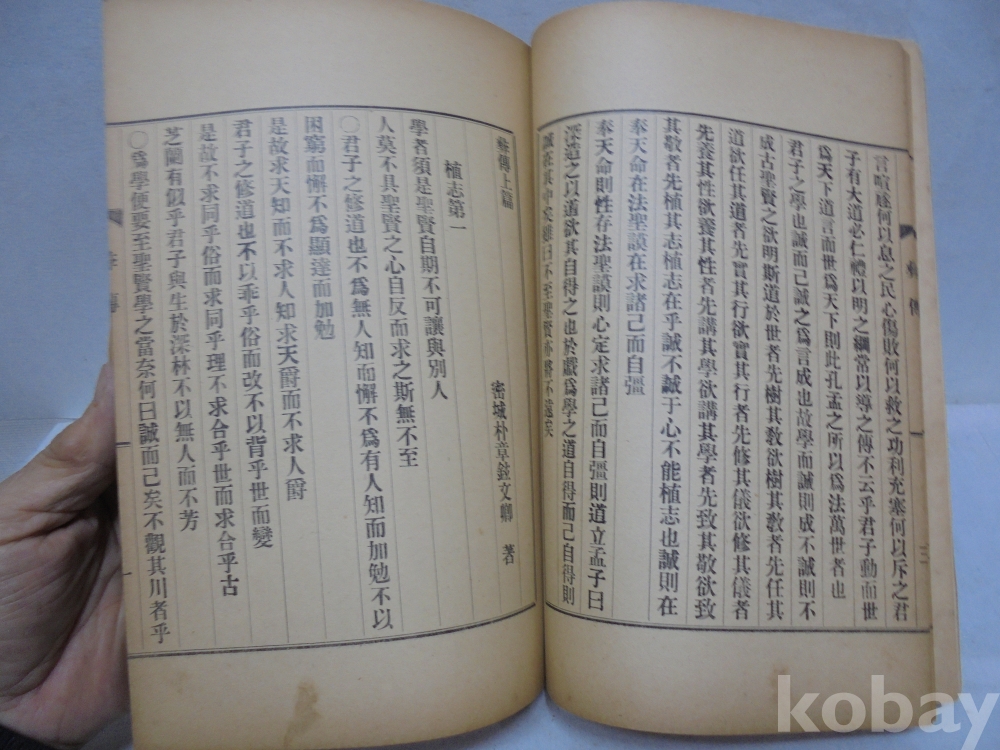 言喧豗何以息之民心傷敗何以救之功利充塞何以斥之君
子有大道必仁禮以明之綱常以導之傳不云乎君子動而世
爲天下道言而世爲天下則此孔孟之所以爲法萬世者也
君子之學也誠而己誠之爲言成也故學而誠則成不誠則不
成古聖賢之欲明斯道於世者先樹其敎欲樹其敎者先任其
道欲任其道者先實其行欲實其行者先修其儀欲修其儀者
先養其性欲養其性者先講其學欲講其學者先致其敬欲致
其敬者先植其志植志在乎誠不誠于心不能植志也誠則在
奉天命在法聖謨在求諸己而自彊
奉天命則性存法聖謨則心定求諸己而自彊則道立孟子曰
深造之以道欲其自得之也於戲爲學之道自得而己自得則
誠在其中矣雖曰不至聖賢亦將不遠矣
傳上篇
密城朴章鉉文卿 著
植志第一
學者須是聖賢自期不可讓與別人
人莫不具聖賢之心自反而求之斯無不至
〇君子之修道也不爲無人知而懈不爲有人知而加勉不以
困窮而懈不爲顯達而加勉
是故求天知而不求人知求天爵而不求人爵
君子之修道也不以乖乎俗而改不以背乎世而變
是故不求同乎俗而求同乎理不求合乎世而求合乎古
芝蘭有似乎君子與生於深林不以無人而不芳
〇爲學便要至聖賢學之當奈何曰誠而己矣不觀其川者乎
傳
三
kobay